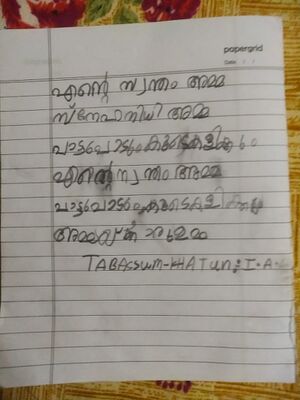 papergrid
Date: / /
എന്റെ സ്വന്തം അമ്മ
സ്നേഹനിധി അമ്മ
പാട്ടുപാടും കൂടെകളിക്കും
എന്റെ സ്വന്തം അമ്മ
പാട്ടുപാടും കൂടെകളിക്കും
അമ്മയ്ക്ക്
TABASSUM-KHATUN: I-A